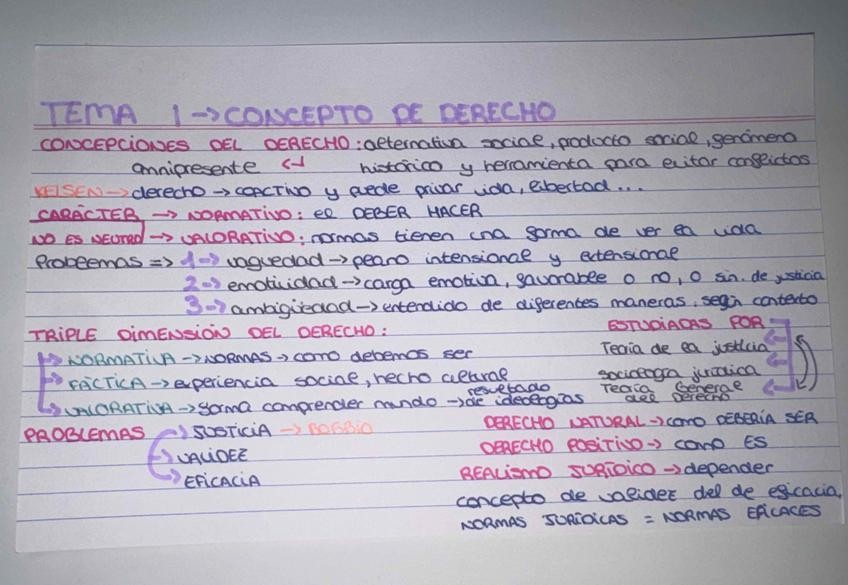 TEMA 1 → CONCEPTO DE DERECHO
CONCEPCIONES DEL DERECHO: alternativa social, producto social, fenómeno
omnipresente ↵ histórico y herramienta para evitar conflictos
KELSEN → derecho → COACTIVO y puede privar vida, libertad...
CARÁCTER → NORMATIVO: el DEBER HACER
NO ES NEUTRO → VALORATIVO: normas tienen una forma de ver la vida
Problemas => 1 → vaguedad → plano intensional y extensional
2 → emotividad → carga emotiva, favorable o no, o sin. de justicia
3 → ambigüedad → entendido de diferentes maneras, según contexto
TRIPLE DIMENSIÓN DEL DERECHO: ESTUDIADAS POR
→ NORMATIVA → NORMAS → como debemos ser Teoría de la justicia
→ FÁCTICA → experiencia social, hecho cultural sociología jurídica
→ VALORATIVA → forma comprender mundo → resultado de ideologías Teoría General del Derecho
PROBLEMAS → JUSTICIA → BOBBIO DERECHO NATURAL → como DEBERÍA SER
→ VALIDEZ DERECHO POSITIVO → como ES
→ EFICACIA REALISMO JURÍDICO → depender
concepto de validez del de eficacia,
NORMAS JURÍDICAS = NORMAS EFICACES